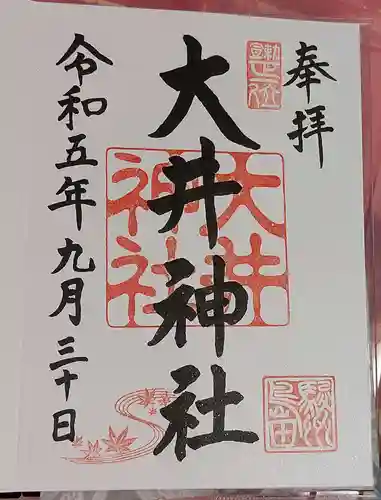 奉拝
大井神社
令和五年九月三十日
大井
神社